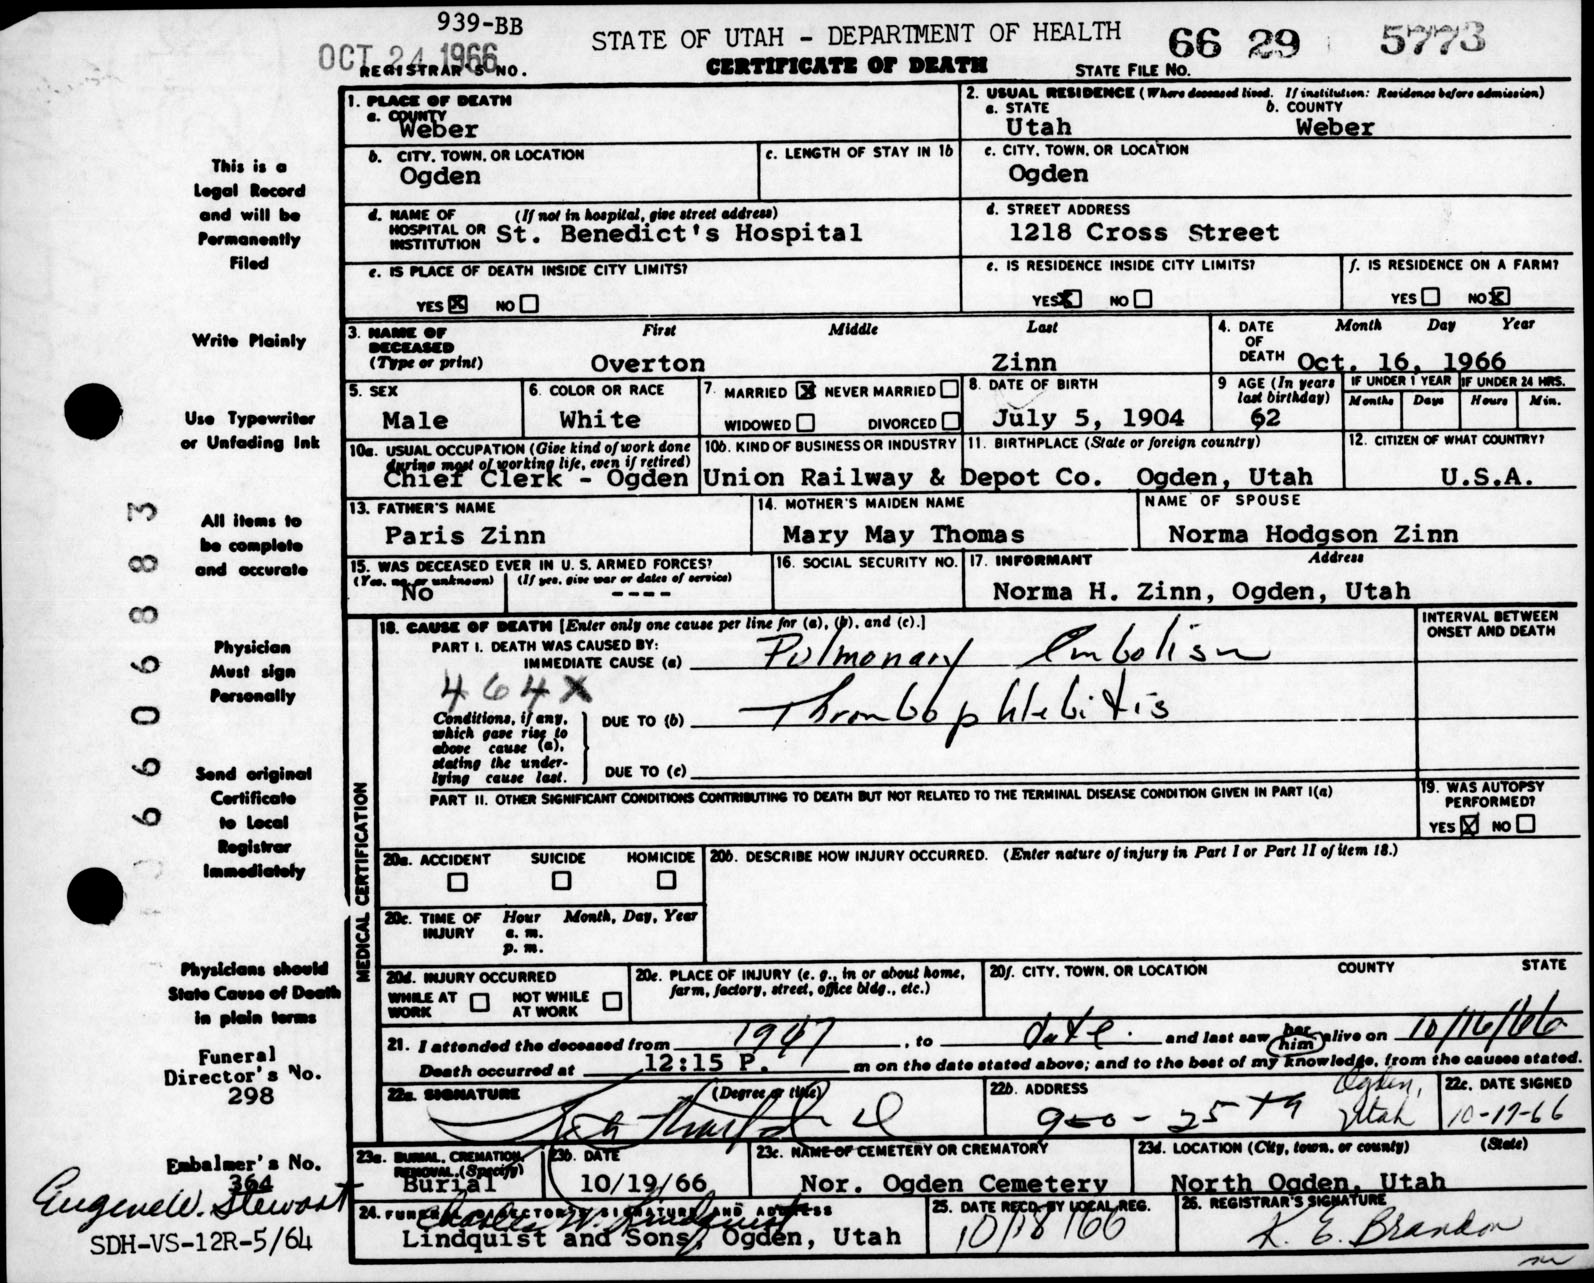 939-BB
OCT 24 1966
REGISTRAR'S NO.
STATE OF UTAH - DEPARTMENT OF HEALTH
CERTIFICATE OF DEATH
66 29 5773
STATE FILE NO.
1. PLACE OF DEATH
a. COUNTY
Weber
2. USUAL RESIDENCE (Where deceased lived. If institution: Residence before admission)
a. STATE b. COUNTY
Utah Weber
b. CITY, TOWN, OR LOCATION
Ogden
c. LENGTH OF STAY IN 1b
c. CITY, TOWN, OR LOCATION
Ogden
d. NAME OF (If not in hospital, give street address)
HOSPITAL OR
INSTITUTION St. Benedict's Hospital
d. STREET ADDRESS
1218 Cross Street
e. IS PLACE OF DEATH INSIDE CITY LIMITS?
YES X NO
e. IS RESIDENCE INSIDE CITY LIMITS?
YES X NO
f. IS RESIDENCE ON A FARM?
YES NO X
3. NAME OF First Middle Last
DECEASED
(Type or print) Overton Zinn
4. DATE Month Day Year
OF
DEATH Oct. 16, 1966
5. SEX
Male
6. COLOR OR RACE
White
7. MARRIED X NEVER MARRIED
WIDOWED DIVORCED
8. DATE OF BIRTH
July 5, 1904
9 AGE (In years
last birthday)
62
IF UNDER 1 YEAR IF UNDER 24 HRS.
Months Days Hours Min.
10a. USUAL OCCUPATION (Give kind of work done
during most of working life, even if retired)
Chief Clerk - Ogden
10b. KIND OF BUSINESS OR INDUSTRY
Union Railway & Depot Co.
11. BIRTHPLACE (State or foreign country)
Ogden, Utah
12. CITIZEN OF WHAT COUNTRY?
U.S.A.
13. FATHER'S NAME
Paris Zinn
14. MOTHER'S MAIDEN NAME
Mary May Thomas
NAME OF SPOUSE
Norma Hodgson Zinn
15. WAS DECEASED EVER IN U. S. ARMED FORCES?
(Yes, no, or unknown) (If yes, give war or dates of service)
No ----
16. SOCIAL SECURITY NO.
17. INFORMANT Address
Norma H. Zinn, Ogden, Utah
18. CAUSE OF DEATH [Enter only one cause per line for (a), (b), and (c).]
INTERVAL BETWEEN
ONSET AND DEATH
PART I. DEATH WAS CAUSED BY:
IMMEDIATE CAUSE (a) Pulmonary Embolism
464X
Conditions, if any,
which gave rise to
above cause (a),
stating the under-
lying cause last.
DUE TO (b) Thrombophlebitis
DUE TO (c)
PART II. OTHER SIGNIFICANT CONDITIONS CONTRIBUTING TO DEATH BUT NOT RELATED TO THE TERMINAL DISEASE CONDITION GIVEN IN PART I(a)
19. WAS AUTOPSY
PERFORMED?
YES X NO
MEDICAL CERTIFICATION
20a. ACCIDENT SUICIDE HOMICIDE
20b. DESCRIBE HOW INJURY OCCURRED. (Enter nature of injury in Part I or Part II of item 18.)
20c. TIME OF Hour Month, Day, Year
INJURY a. m.
p. m.
20d. INJURY OCCURRED
WHILE AT NOT WHILE
WORK AT WORK
20e. PLACE OF INJURY (e. g., in or about home,
farm, factory, street, office bldg., etc.)
20f. CITY, TOWN, OR LOCATION COUNTY STATE
21. I attended the deceased from 1947, to date. and last saw her him alive on 10/16/66
Death occurred at 12:15 P. m on the date stated above; and to the best of my knowledge, from the causes stated.
22a. SIGNATURE (Degree or title)
22b. ADDRESS
950-25th Ogden,
Utah
22c. DATE SIGNED
10-17-66
23a. BURIAL, CREMATION,
REMOVAL, (Specify)
Burial
23b. DATE
10/19/66
23c. NAME OF CEMETERY OR CREMATORY
Nor. Ogden Cemetery
23d. LOCATION (City, town, or county) (State)
North Ogden, Utah
24. FUNERAL DIRECTOR'S SIGNATURE AND ADDRESS
Charles W. Lindquist
Lindquist and Sons, Ogden, Utah
25. DATE RECD. BY LOCAL REG.
10/18/66
26. REGISTRAR'S SIGNATURE
K. E. Brandon
This is a
Legal Record
and will be
Permanently
Filed
Write Plainly
Use Typewriter
or Unfading Ink
All items to
be complete
and accurate
Physician
Must sign
Personally
Send original
Certificate
to Local
Registrar
Immediately
Physicians should
State Cause of Death
in plain terms
Funeral
Director's No.
298
Embalmer's No.
364
Eugene W. Stewart
SDH-VS-12R-5/64
66906883